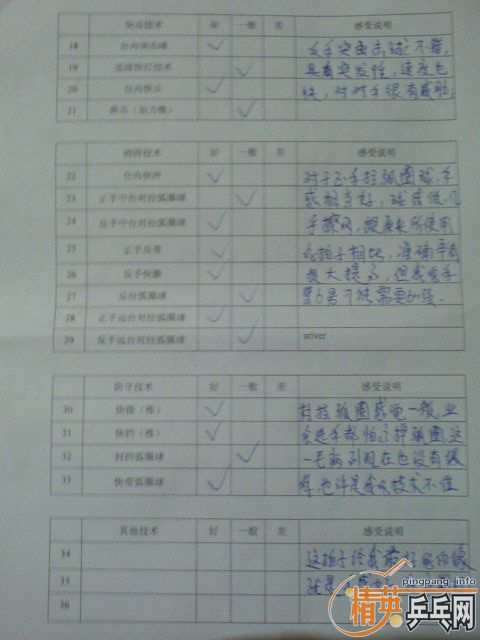 快攻技术 好 一般 差 感受说明
18 台内突击球 ✓ 反手突击击球不错,
19 连续快打技术 ✓ 具有突发性,速度也
20 台内快点 ✓ 快,对对手很有威胁;
21 弹击(加力推) ✓
相持技术 好 一般 差 感受说明
22 台内快冲 ✓ 对于正手拉弧圈球,手
23 正手中台对拉弧圈球 ✓ 感相当好,
24 反手中台对拉弧圈球 ✓ 使用
25 正手反带 ✓ 拍子相比,准确率有
26 反手快撕 ✓ 很大提高,但
27 反拉弧圈球 ✓ 需要加强.
28 正手远台对拉弧圈球 ✓
29 反手远台对拉弧圈球 ✓ sriver
防守技术 好 一般 差 感受说明
30 快拨(推) ✓ 对拉弧圈感觉一般,业
31 快挡(推) ✓ 余选手都怕 弧圈,这
32 封挡弧圈球 ✓ 一毛病到现在也没有
33 快带弧圈球 ✓ 也许是 技术不
其他技术 好 一般 差 感受说明
34 这拍子给我 的印象
35 就是
36
pingpang.info
精英乒乓网